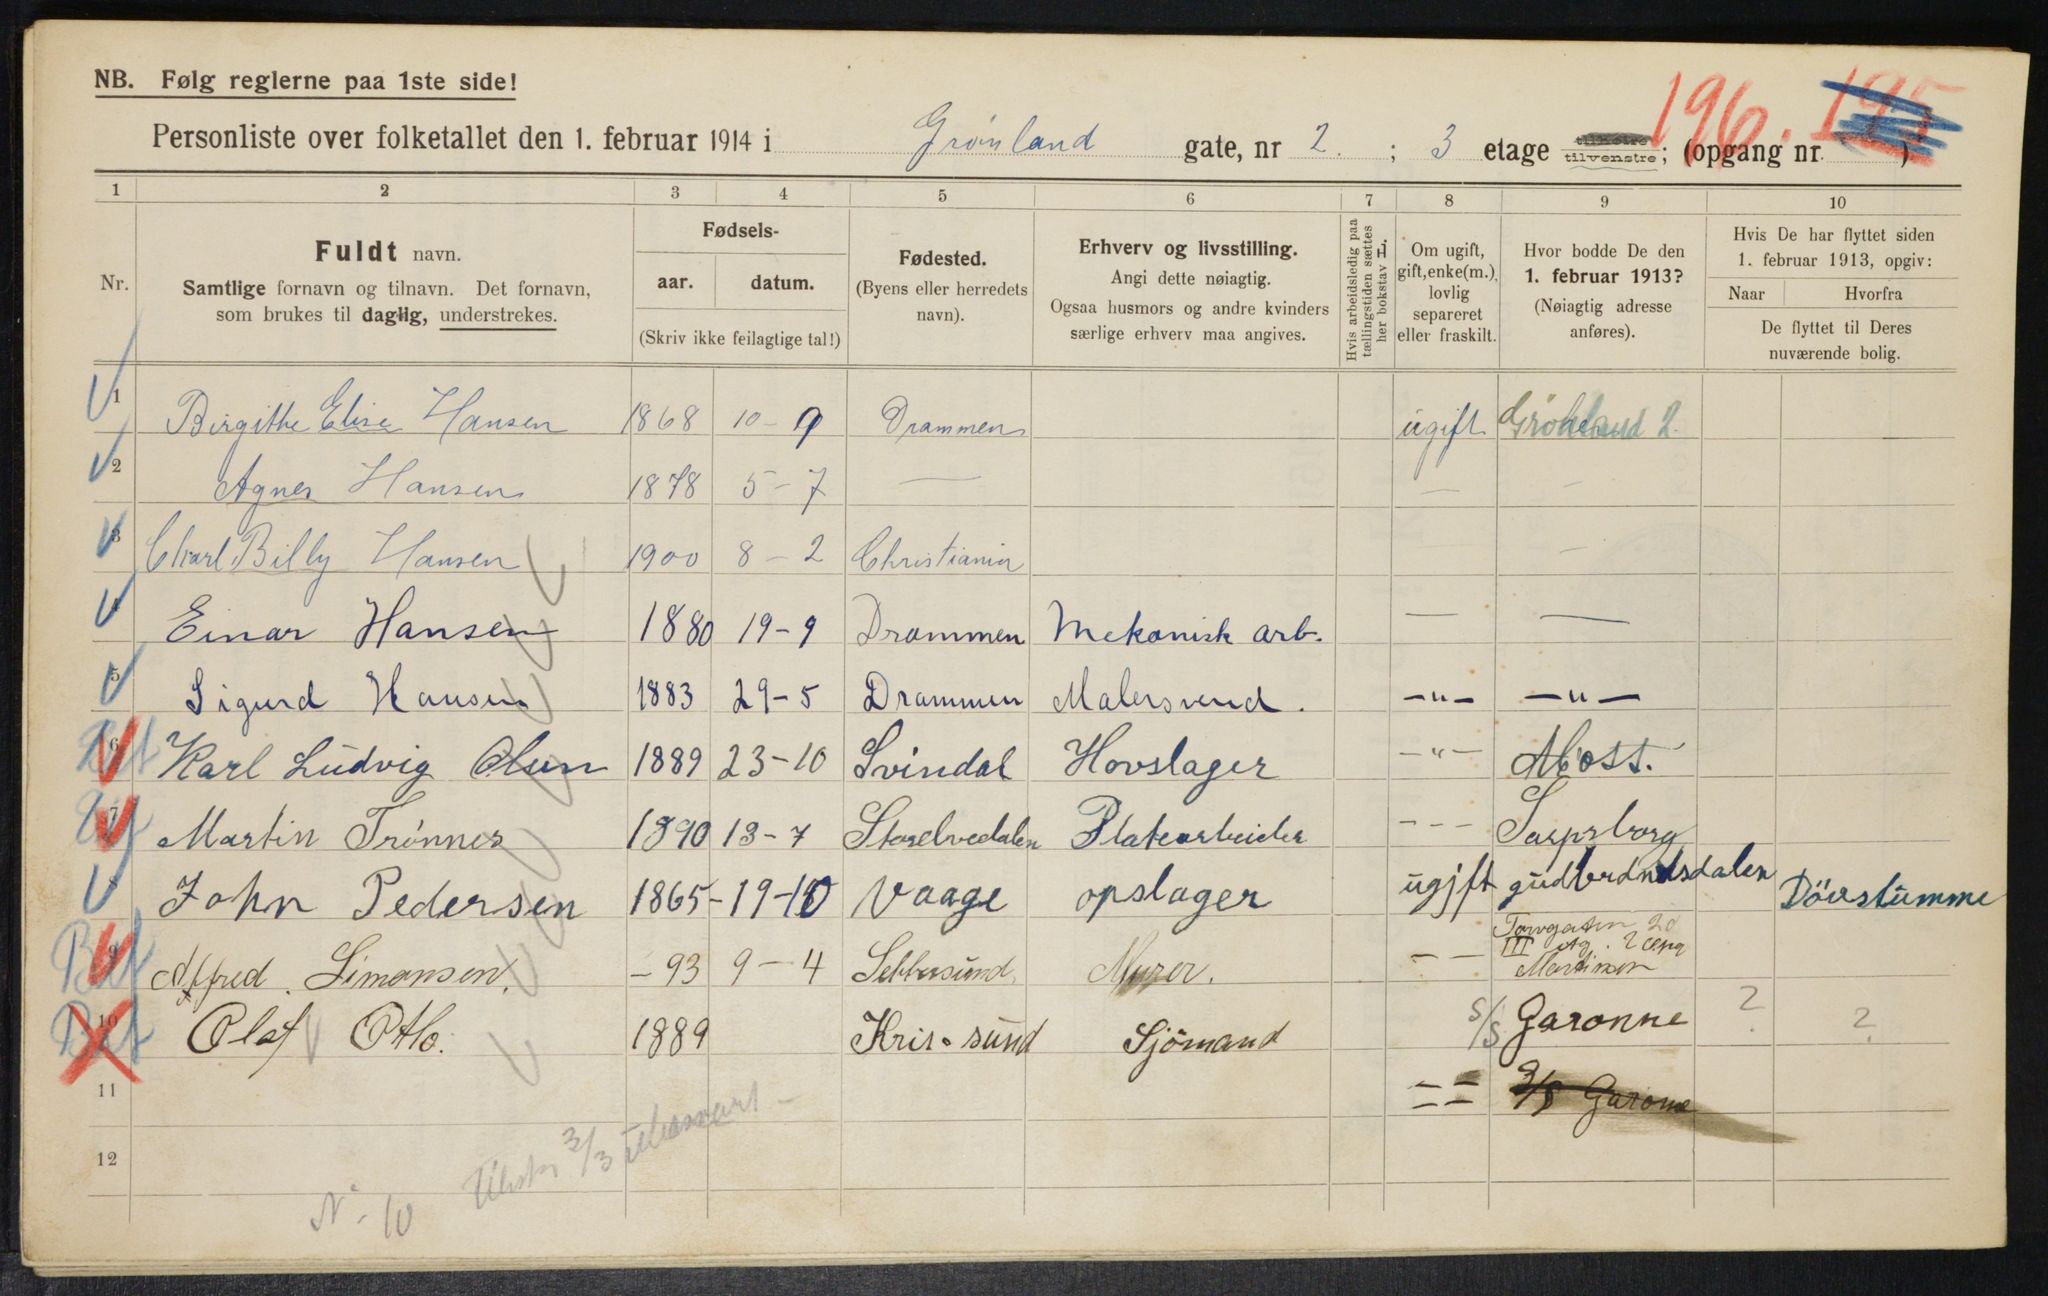 NB. Følg reglerne paa 1ste side!
196. 195
Personliste over folketallet den 1. februar 1914 i Grønland gate, nr 2. ; 3 etage tilhøire tilvenstre; (opgang nr. )
1 2 3 4 5 6 7 8 9 10
Nr.
Fuldt navn.
Samtlige fornavn og tilnavn. Det fornavn,
som brukes til daglig, understrekes.
Fødsels-
aar. datum.
(Skriv ikke feilagtige tal!)
Fødested.
(Byens eller herredets
navn).
Erhverv og livsstilling.
Angi dette nøiagtig.
Ogsaa husmors og andre kvinders
særlige erhverv maa angives.
Hvis arbeidsledig paa
tællingstiden sættes
her bokstav L.
Om ugift,
gift, enke(m.),
lovlig
separeret
eller fraskilt.
Hvor bodde De den
1. februar 1913?
(Nøiagtig adresse
anføres).
Hvis De har flyttet siden
1. februar 1913, opgiv:
Naar Hvorfra
De flyttet til Deres
nuværende bolig.
1 Birgithe Elise Hansen 1868 10-9 Drammen ugift Grønland 2.
2 Agnes Hansen 1878 5-7 — — -
3 Charl Billy Hansen 1900 8-2 Christiania -
4 Einar Hansen 1880 19-9 Drammen Mekanisk arb. — —
5 Sigurd Hansen 1883 29-5 Drammen Malersvend. —"— —"—
6 Karl Ludvig Olsen 1889 23-10 Svindal Hovslager —"— Moss.
7 Martin Trønnes 1890 13-7 Storelvedalen Platearbeider --- Sarpsborg
8 John Pedersen 1865 - 19-10 Vaage opslager ugift gudbrandsdalen Døvstumme
9 Alfred Simonsen. - 93 9-4 Murer. -- Torvgaten 20
III etg. 2 Opg
10 Olaf Otto. 1889 Kris.sund Sjömand S/S Garonne ? ?
11 == S/S Garonne
12
N. 10